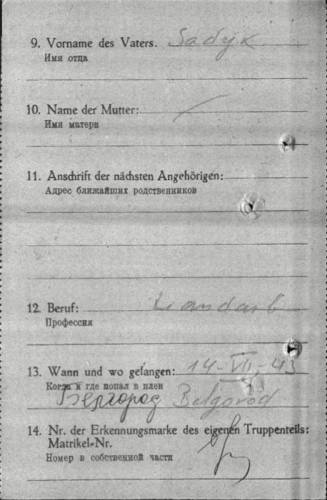 9. Vorname des Vaters. Sadyk
Имя отца
10. Name der Mutter: —
Имя матери
11. Anschrift der nächsten Angehörigen:
Адрес ближайших родственников
12. Beruf: Landarb
Профессия
13. Wann und wo gefangen: 14-VII-43
Когда и где попал в плен
Белгород Belgorod
14. Nr. der Erkennungsmarke des eigenen Truppenteils:
Matrikel-Nr.
Номер в собственной части